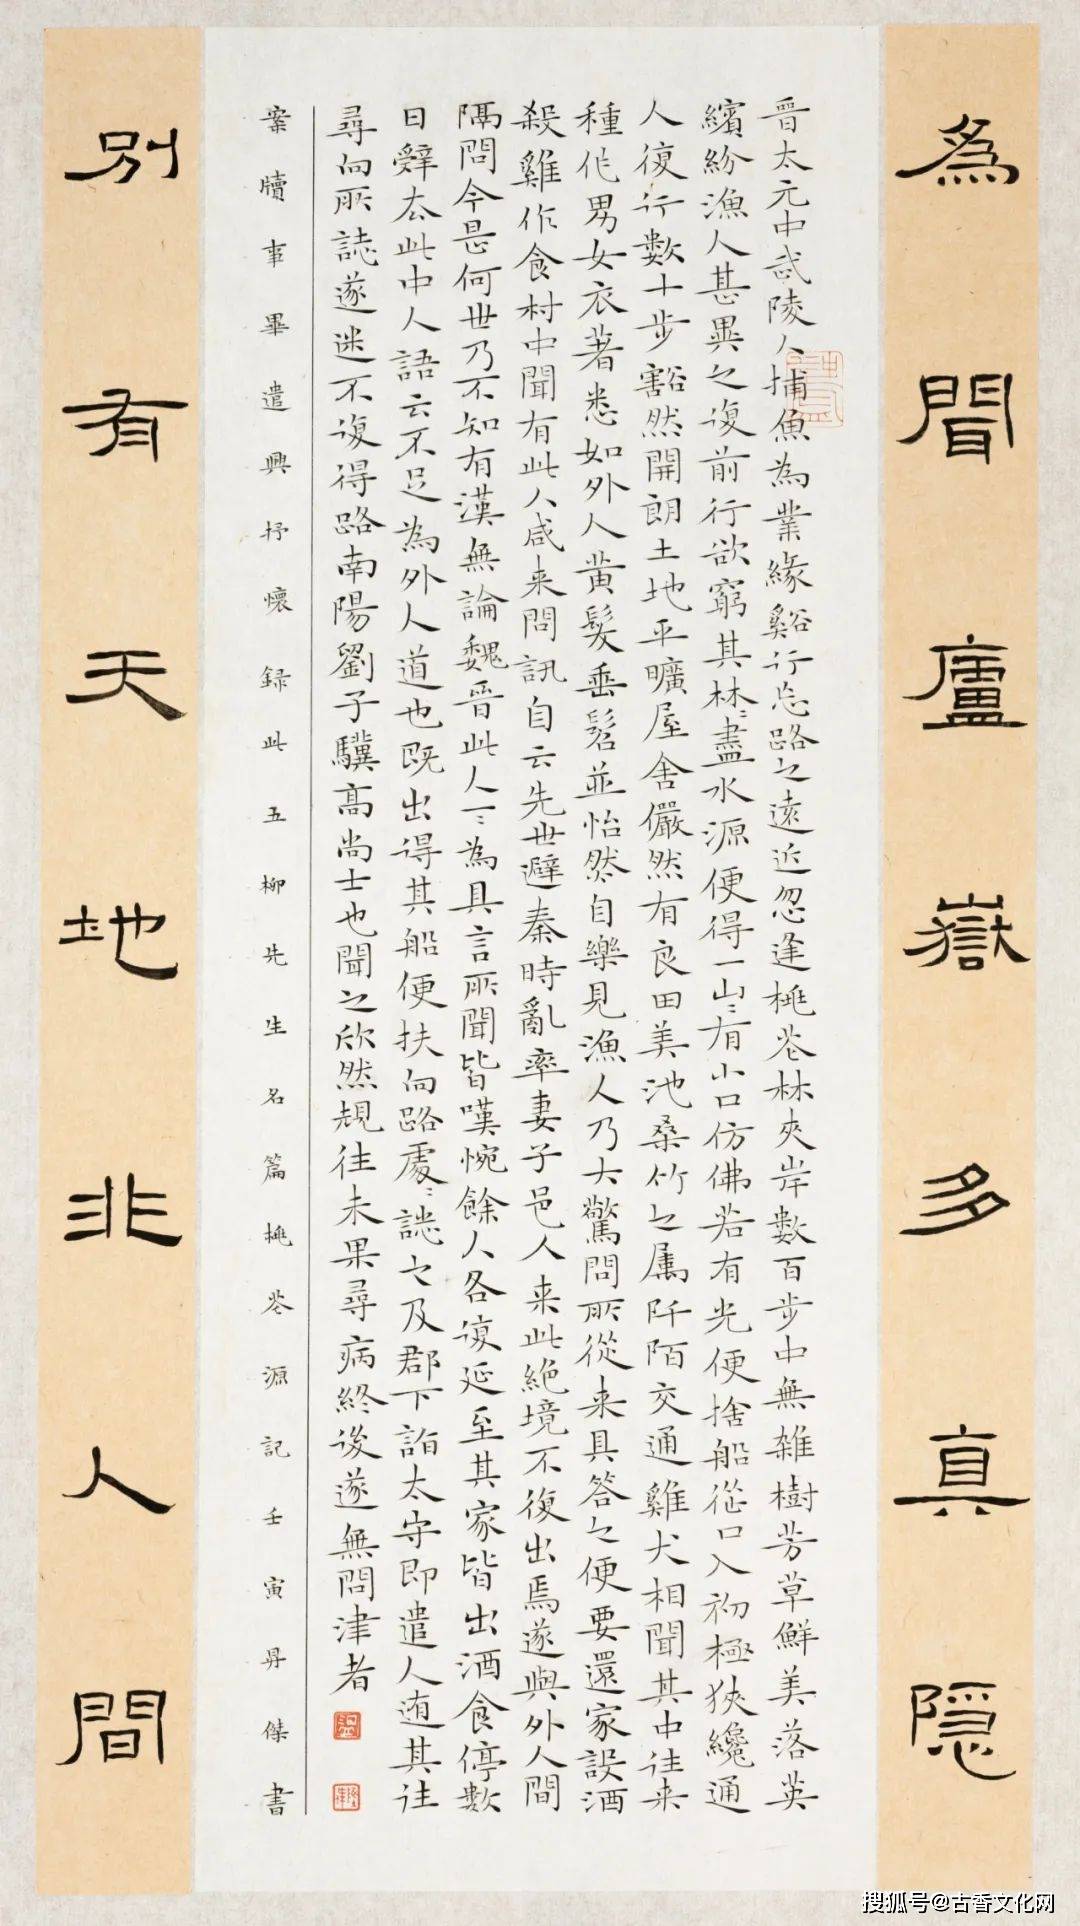 為聞廬嶽多真隱
晉太元中武陵人捕魚為業緣谿行忘路之遠近忽逢桃花林夾岸數百步中無雜樹芳草鮮美落英
繽紛漁人甚異之復前行欲窮其林〻盡水源便得一山〻有小口仿佛若有光便捨船從口入初極狹纔通
人復行數十步豁然開朗土地平曠屋舍儼然有良田美池桑竹之属阡陌交通雞犬相聞其中往来
種作男女衣著悉如外人黃髮垂髫並怡然自樂見漁人乃大驚問所從来具答之便要還家設酒
殺雞作食村中聞有此人咸来問訊自云先世避秦時亂率妻子邑人来此絶境不復出焉遂與外人間
隔問今是何世乃不知有漢無論魏晉此人一〻為具言所聞皆嘆惋餘人各復延至其家皆出酒食停數
日辭去此中人語云不足為外人道也既出得其船便扶向路處〻誌之及郡下詣太守即遣人隨其往
尋向所誌遂迷不復得路南陽劉子驥高尚士也聞之欣然規往未果尋病終後遂無問津者
案牘事畢遣興抒懷録此五柳先生名篇桃花源記壬寅昇傑書
別有天地非人間
搜狐号@古香文化网